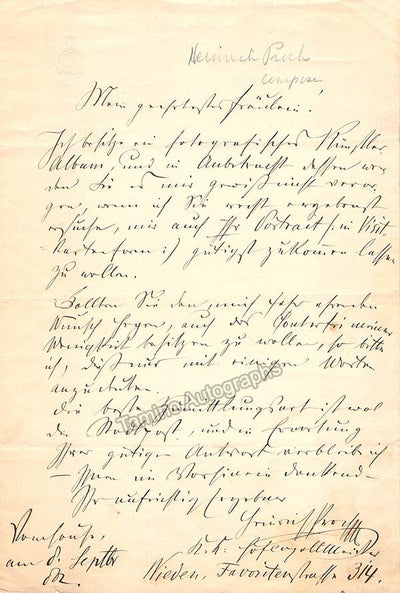 Heinrich Proch
Mein geehrtestes Fräulein!
Ich besitze ein fotografisches Künstler-
Album, und in Anbetracht dessen wer-
den Sie es mir gewiß nicht verar-
gen, wenn ich Sie recht ergebenst
ersuche, mir auch Ihr Portrait /: in Visit-
kartenform :/ gütigst zukommen lassen
zu wollen.
Sollten Sie den, mich sehr ehrenden
Wunsch hegen, auch das Conterfei meiner
Wenigkeit besitzen zu wollen, so bitte
ich, dieß nur mit einigen Worten
anzudeuten.
Die beste Vermittlungsart ist wol
die Stadtpost, und in Erwartung
Ihrer gütigen Antwort verbleibe ich
– Ihnen im Vorhinein dankend –
Ihr aufrichtig Ergebener
Heinrich Proch
K.K. Hofcapellmeister
Wieden, Favoritenstrasse 314.
Vom Hause,
am 8. Septbr
62.
Tamino Autographs